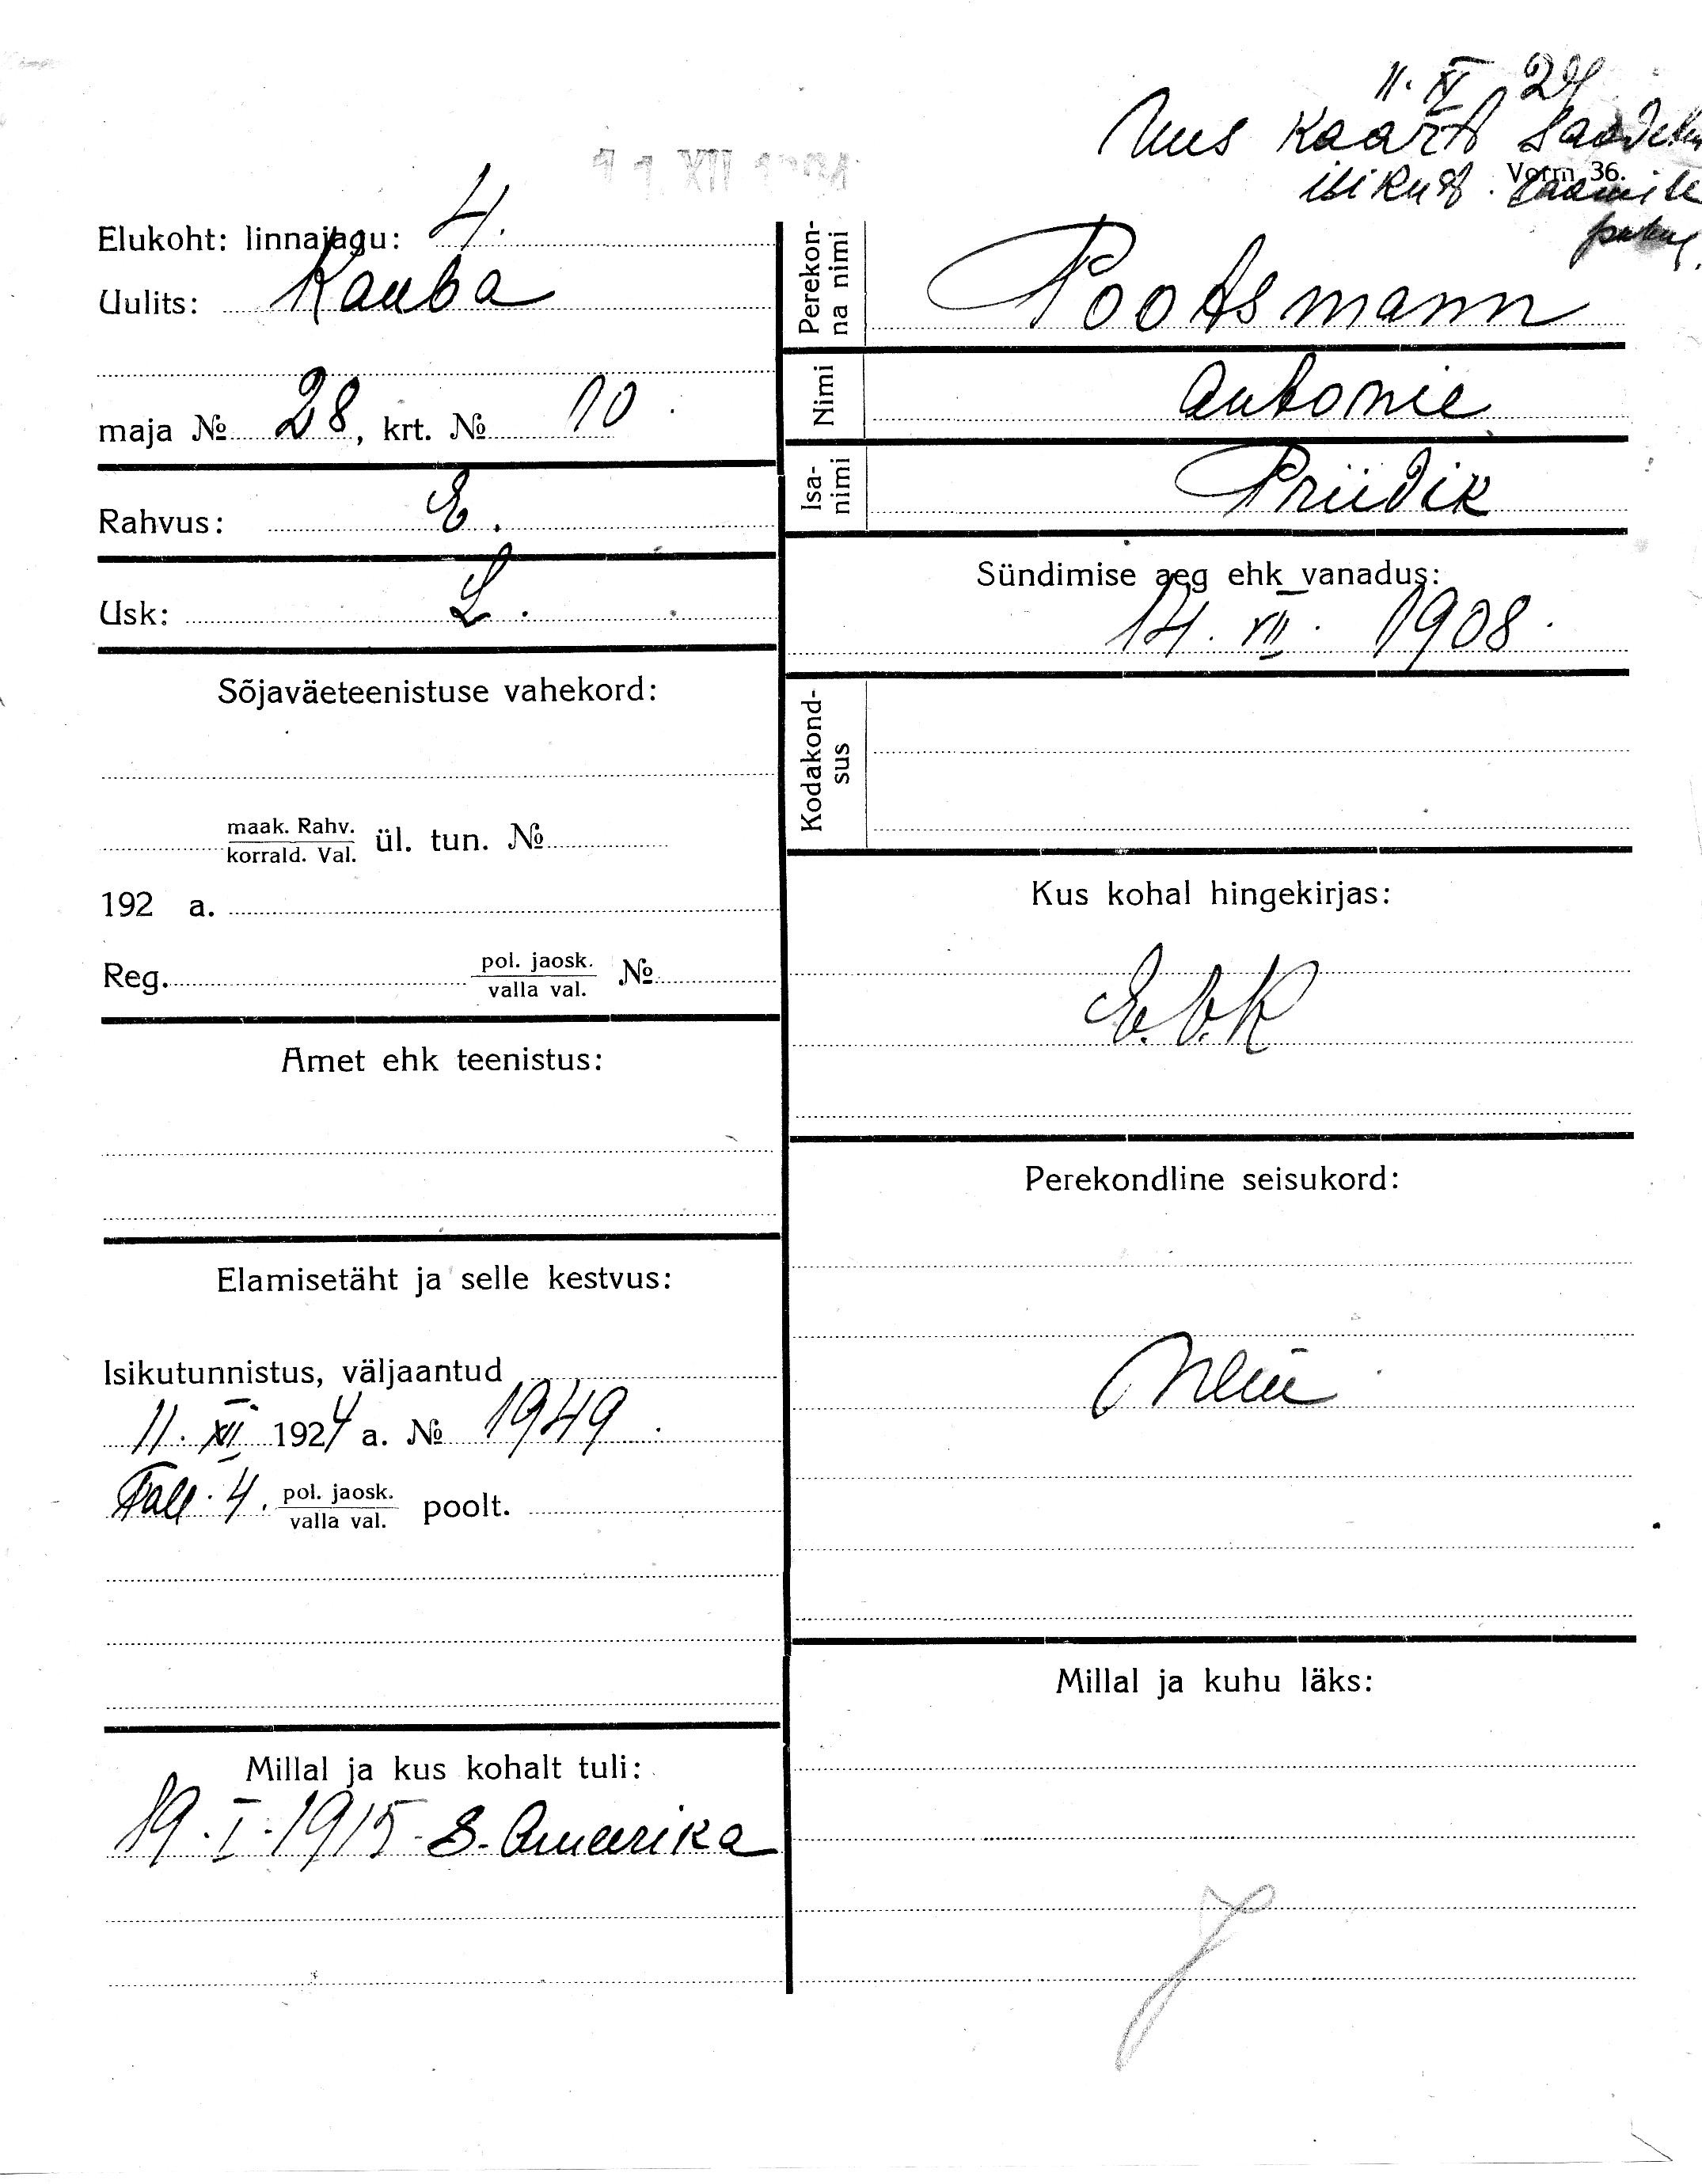 11. XII 24
Uus kaart saadetud
Vorm 36.
isikut. saamise
puhul.
11 XII 1924
Elukoht: linnajagu: 4.
Uulits: Kauba
maja № 28, krt. № 10.
Rahvus: E.
Usk: L.
Sõjaväeteenistuse vahekord:
maak. Rahv.
korrald. Val. ül. tun. №
192 a.
Reg. pol. jaosk.
valla val. №
Amet ehk teenistus:
Elamisetäht ja selle kestvus:
Isikutunnistus, väljaantud
11. XII 1924 a. № 1949.
Tall. 4. pol. jaosk.
valla val. poolt.
Millal ja kus kohalt tuli:
19. I. 1915 - S. Ameerika
Perekon-
na nimi
Pootsmann
Nimi
Antonie
Isa-
nimi
Priidik
Sündimise aeg ehk vanadus:
14. VII. 1908.
Kodakond-
sus
Kus kohal hingekirjas:
E.V.K
Perekondline seisukord:
Neiu
Millal ja kuhu läks: